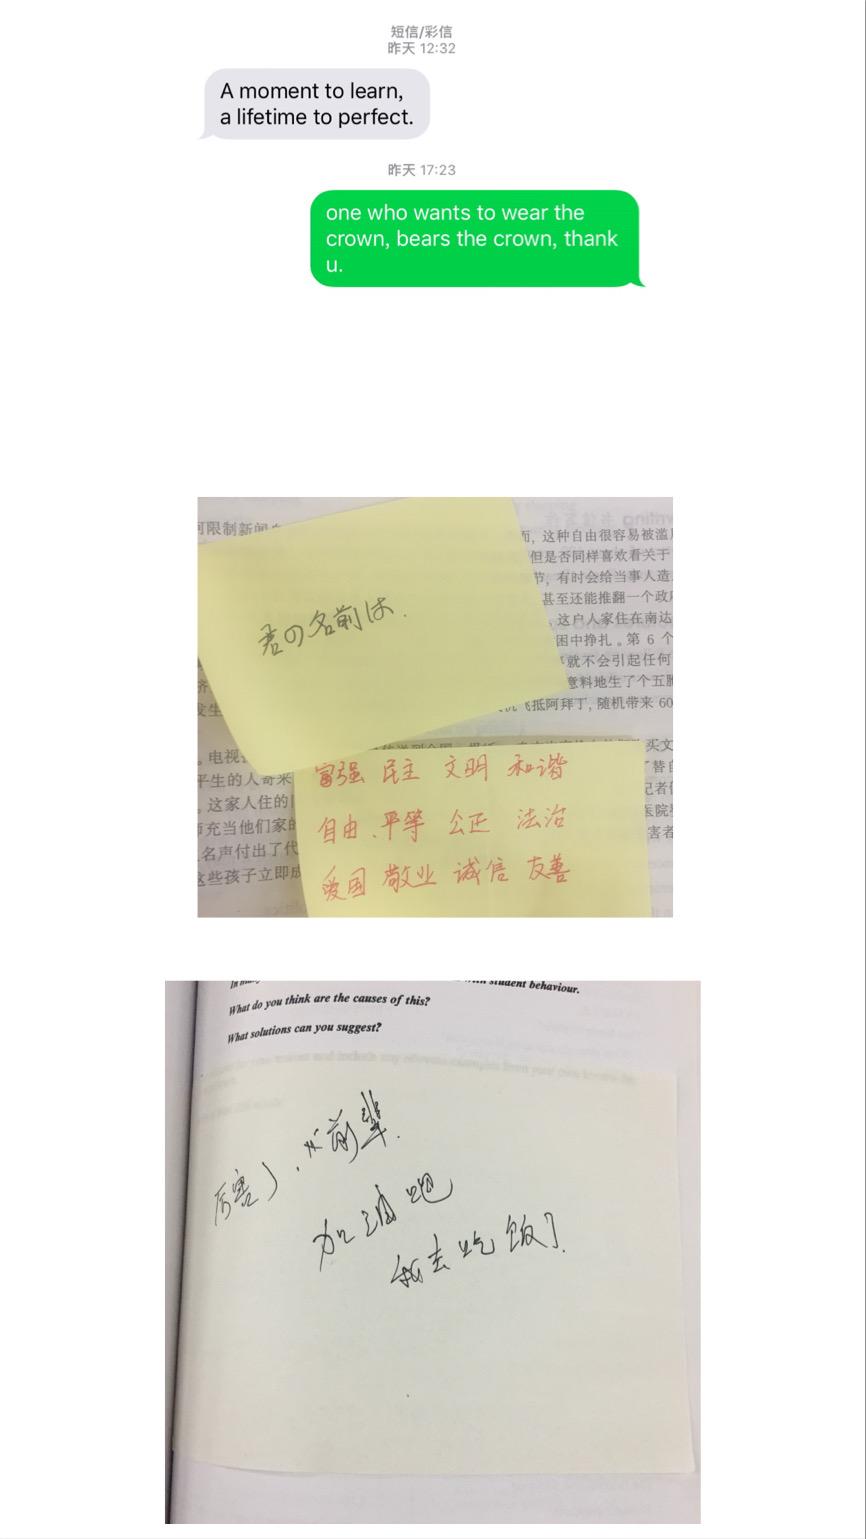 短信/彩信
昨天 12:32
A moment to learn,
a lifetime to perfect.
昨天 17:23
one who wants to wear the
crown, bears the crown, thank
u.
可限制新闻
而, 这种自由很容易被滥
但是否同样喜欢看关于
节, 有时会给当事人造
甚至还能推翻一个政
这户人家住在南达
困中挣扎。第 6 个
就不会引起任何
意料地生了个五
飞抵阿拜丁, 随机带来 60
君の名前は.
发生
。电视
平生的人奇来
, 这家人住的
充当他们家的
名声付出了代
这些孩子立即成
富强 民主 文明 和谐
自由 平等 公正 法治
爱国 敬业 诚信 友善
买文
了替自
记者
医院
害者
student behaviour.
What do you think are the causes of this?
What solutions can you suggest?
厉害了. 前辈.
加油吧
我去吃饭了.